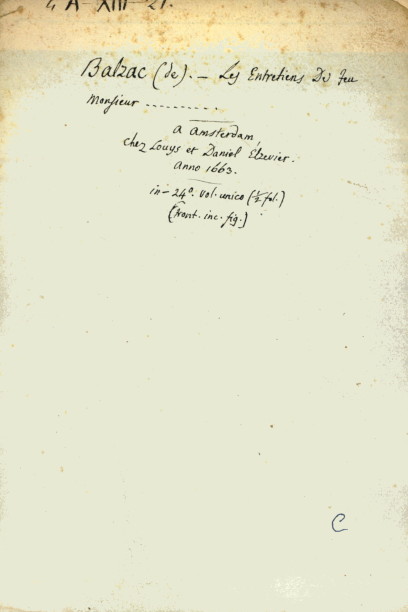 4 A-XIII-21.
Balzac (de). – Les Entretiens De feu
Monsieur ----------
A Amsterdam
chez Louys et Daniel Elzevier.
Anno 1663.
in-24º. vol. unico (½ fol.)
(front. inc. fig.)
C